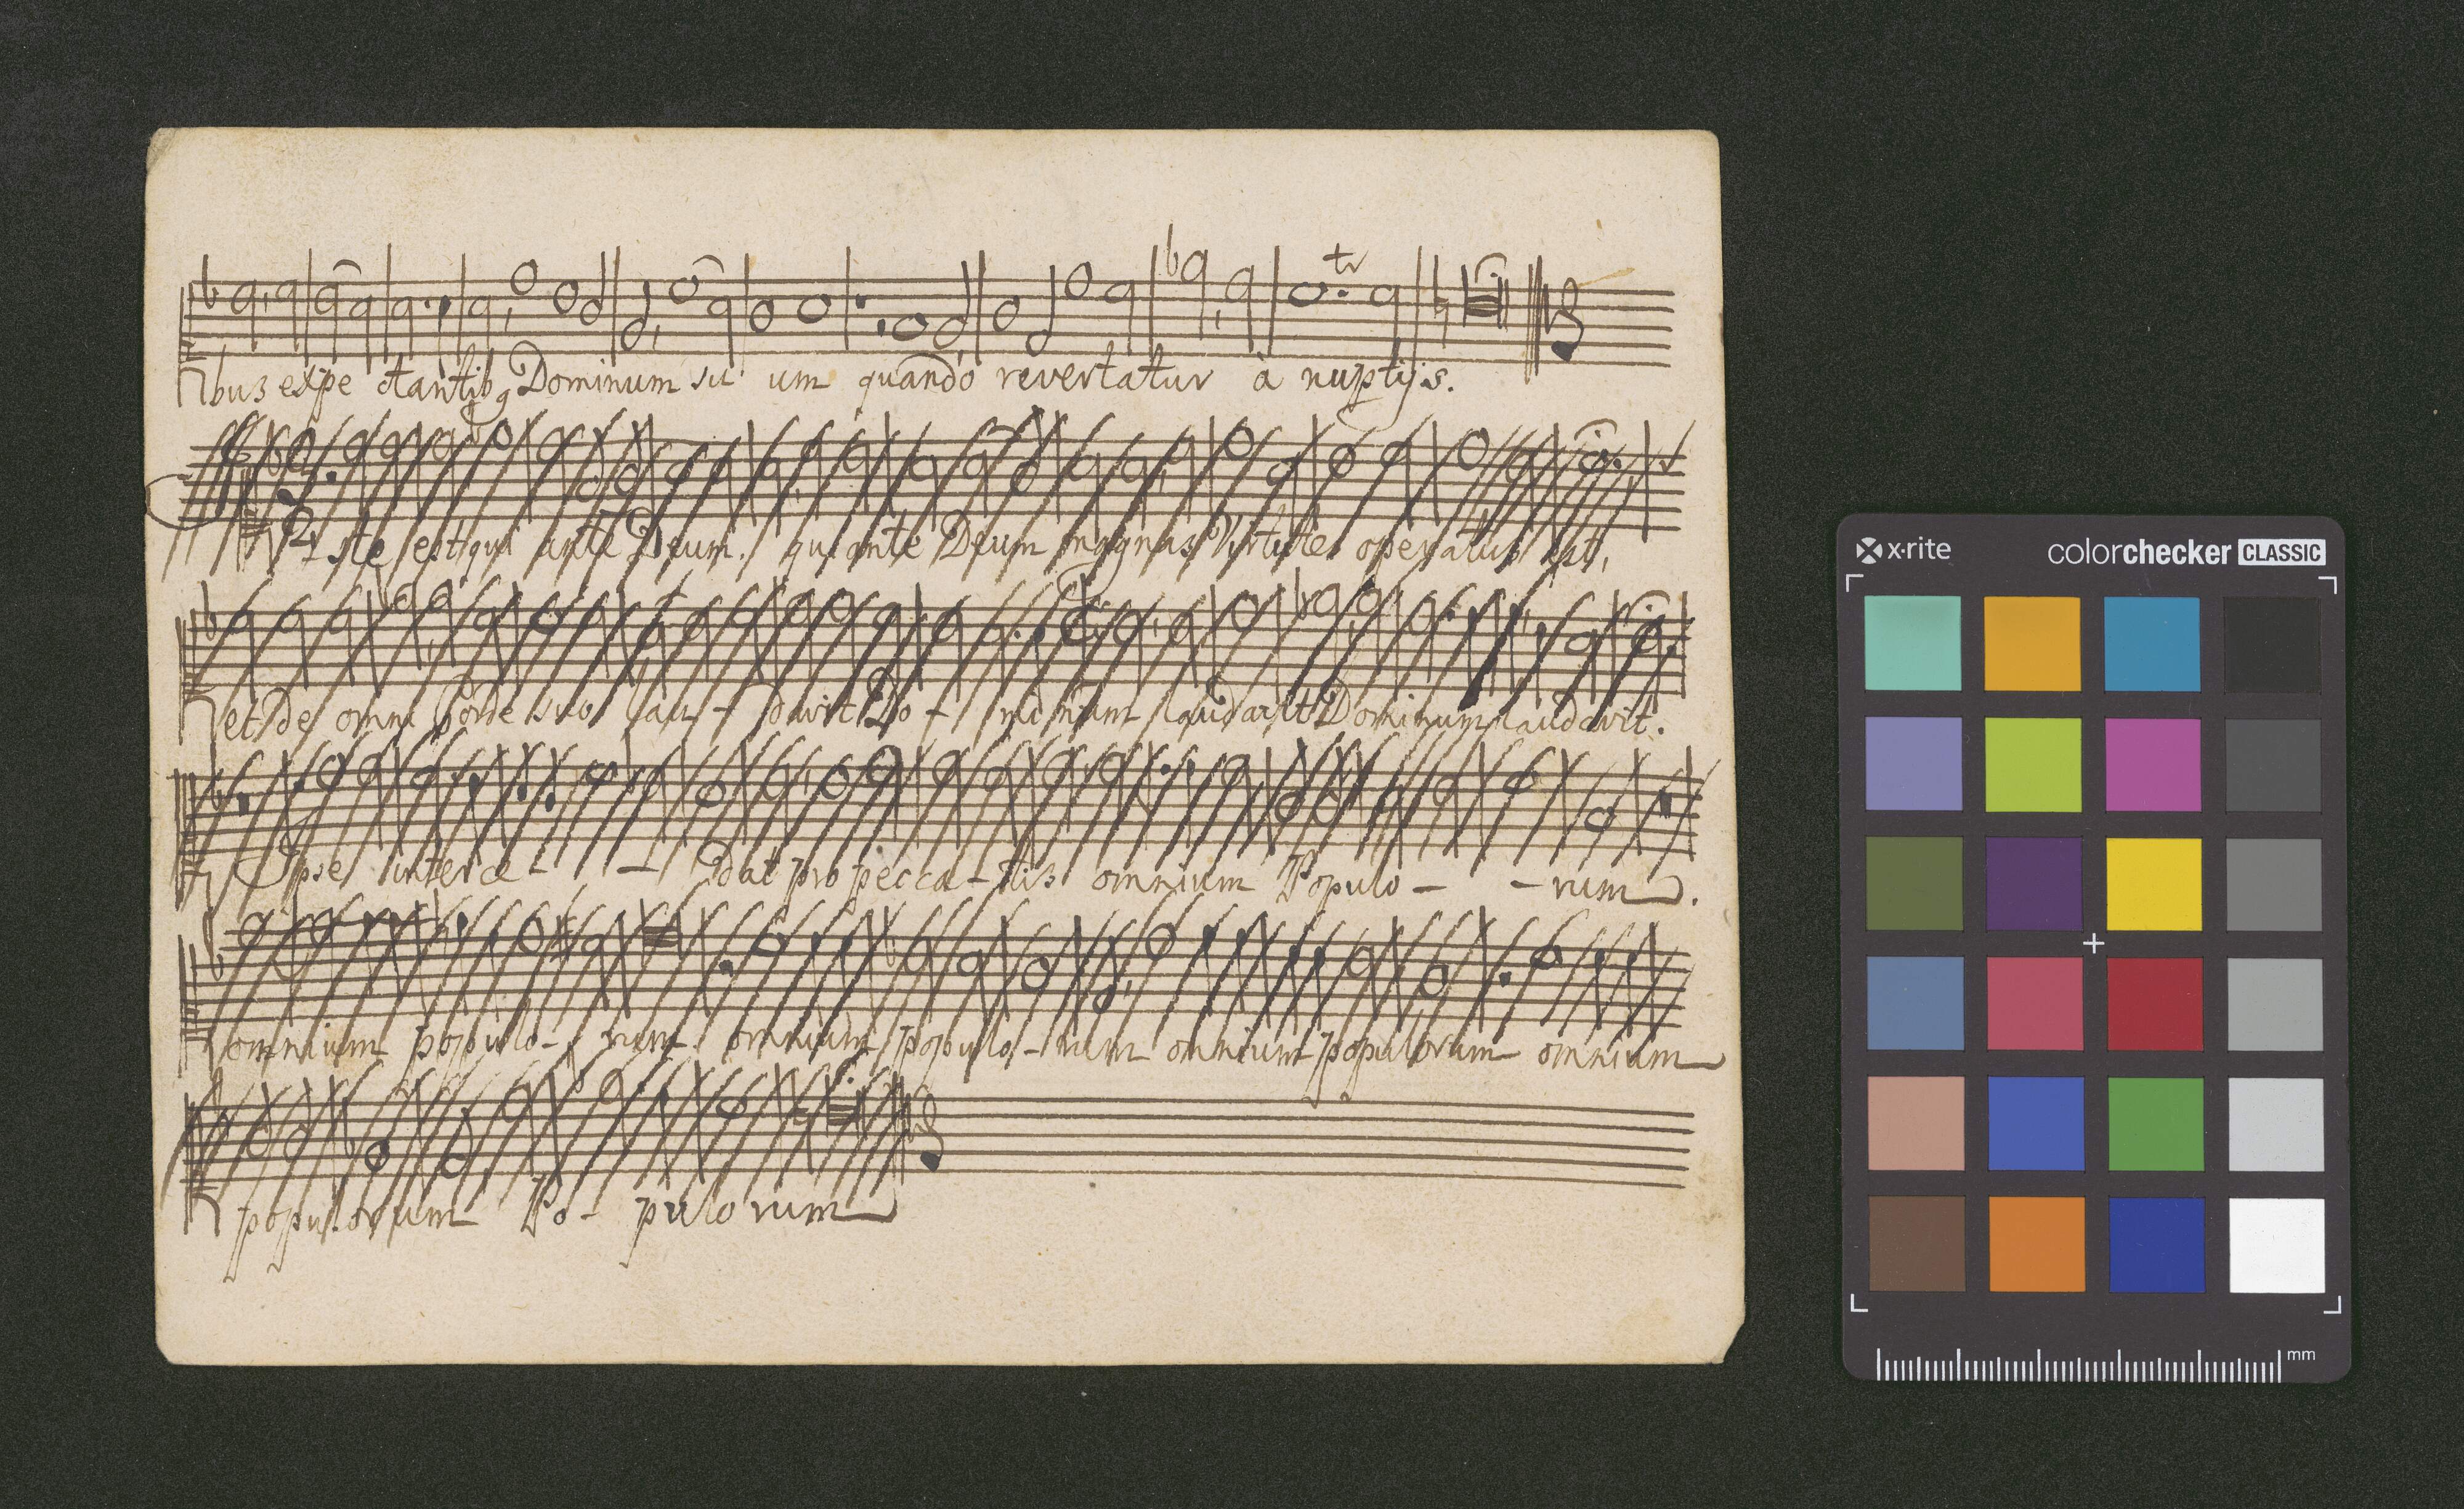 bus expe ctantibꝫ Dominum su um quando revertatur à nuptijs.
tr
Iste est qui ante Deum. qui ante Deum magnas Virtutes operatus est,
et de omni Corde suo lau - davit Do - minum laudavit Dominum laudavit.
Ipse interce - - dat pro pecca - tis omnium Populo - - rum.
omnium populo - rum omnium populo - rum omnium populorum omnium
populorum Po - pulorum
x-rite colorchecker CLASSIC
mm